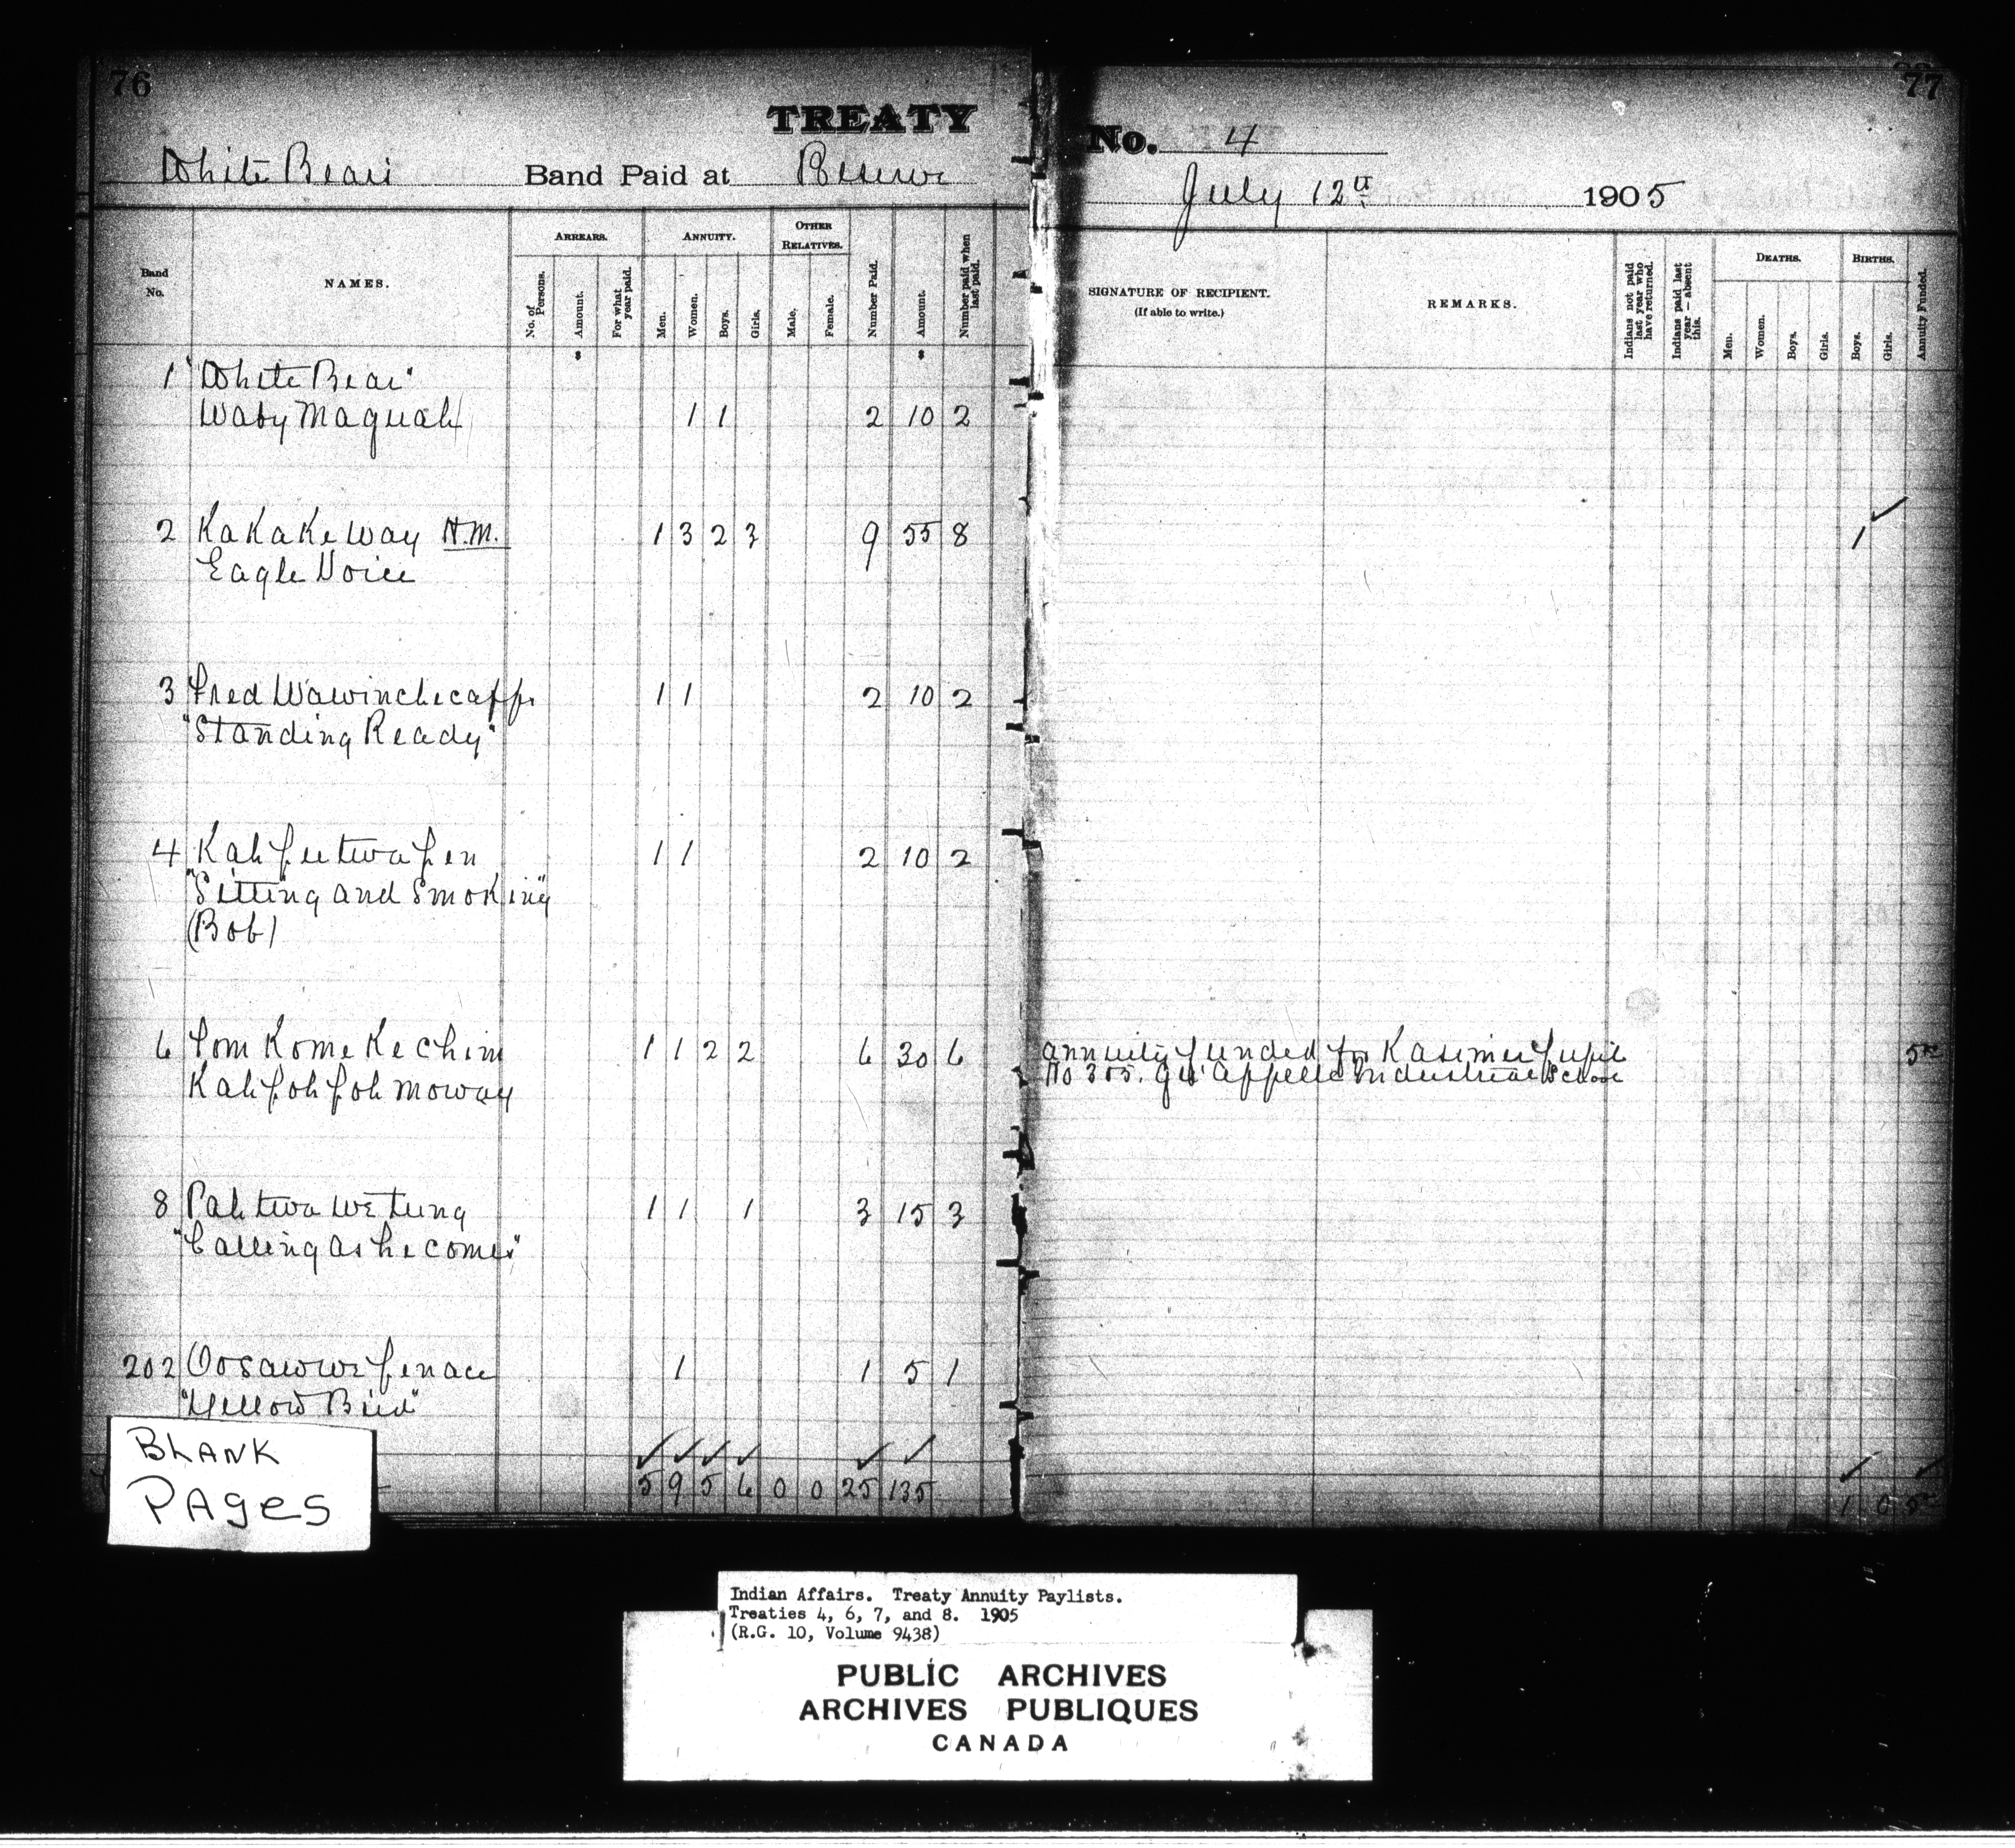 76
TREATY
White Bear's Band Paid at Reserve
Band No.
NAMES.
ARREARS.
No. of Persons.
Amount.
For what year paid.
ANNUITY.
Men.
Women.
Boys.
Girls.
OTHER RELATIVES.
Male.
Female.
Number Paid.
Amount.
Number paid when last paid.
1 "White Bear"
Waby Maquah 1 1 2 10 2
2 Ka Ka Ke Way H.M. 1 3 2 3 9 55 8
Eagle Voice
3 Fred Wawinchecapp. 1 1 2 10 2
"Standing Ready"
4 Kah pee twa pen 1 1 2 10 2
"Sitting and Smoking"
(Bob)
6 Tom Kome Ke Chim 1 1 2 2 6 30 6
Kah poh poh moway
8 Pah twa we tung 1 1 1 3 15 3
"Calling as he comes"
202 Oosawwe penace 1 1 5 1
"Yellow Bird"
5 9 5 6 0 0 25 135
77
No. 4
July 12th 1905
SIGNATURE OF RECIPIENT.
(If able to write.)
REMARKS.
Indians not paid last year who have returned.
Indians paid last year — absent this.
DEATHS.
Men.
Women.
Boys.
Girls.
BIRTHS.
Boys.
Girls.
Annuity Funded.
1
Annuity funded for Kasimer pupil
No 305. Qu'Appelle Industrial School
5
1 0 5
BLANK
PAges
Indian Affairs. Treaty Annuity Paylists.
Treaties 4, 6, 7, and 8. 1905
(R.G. 10, Volume 9438)
PUBLIC ARCHIVES
ARCHIVES PUBLIQUES
CANADA